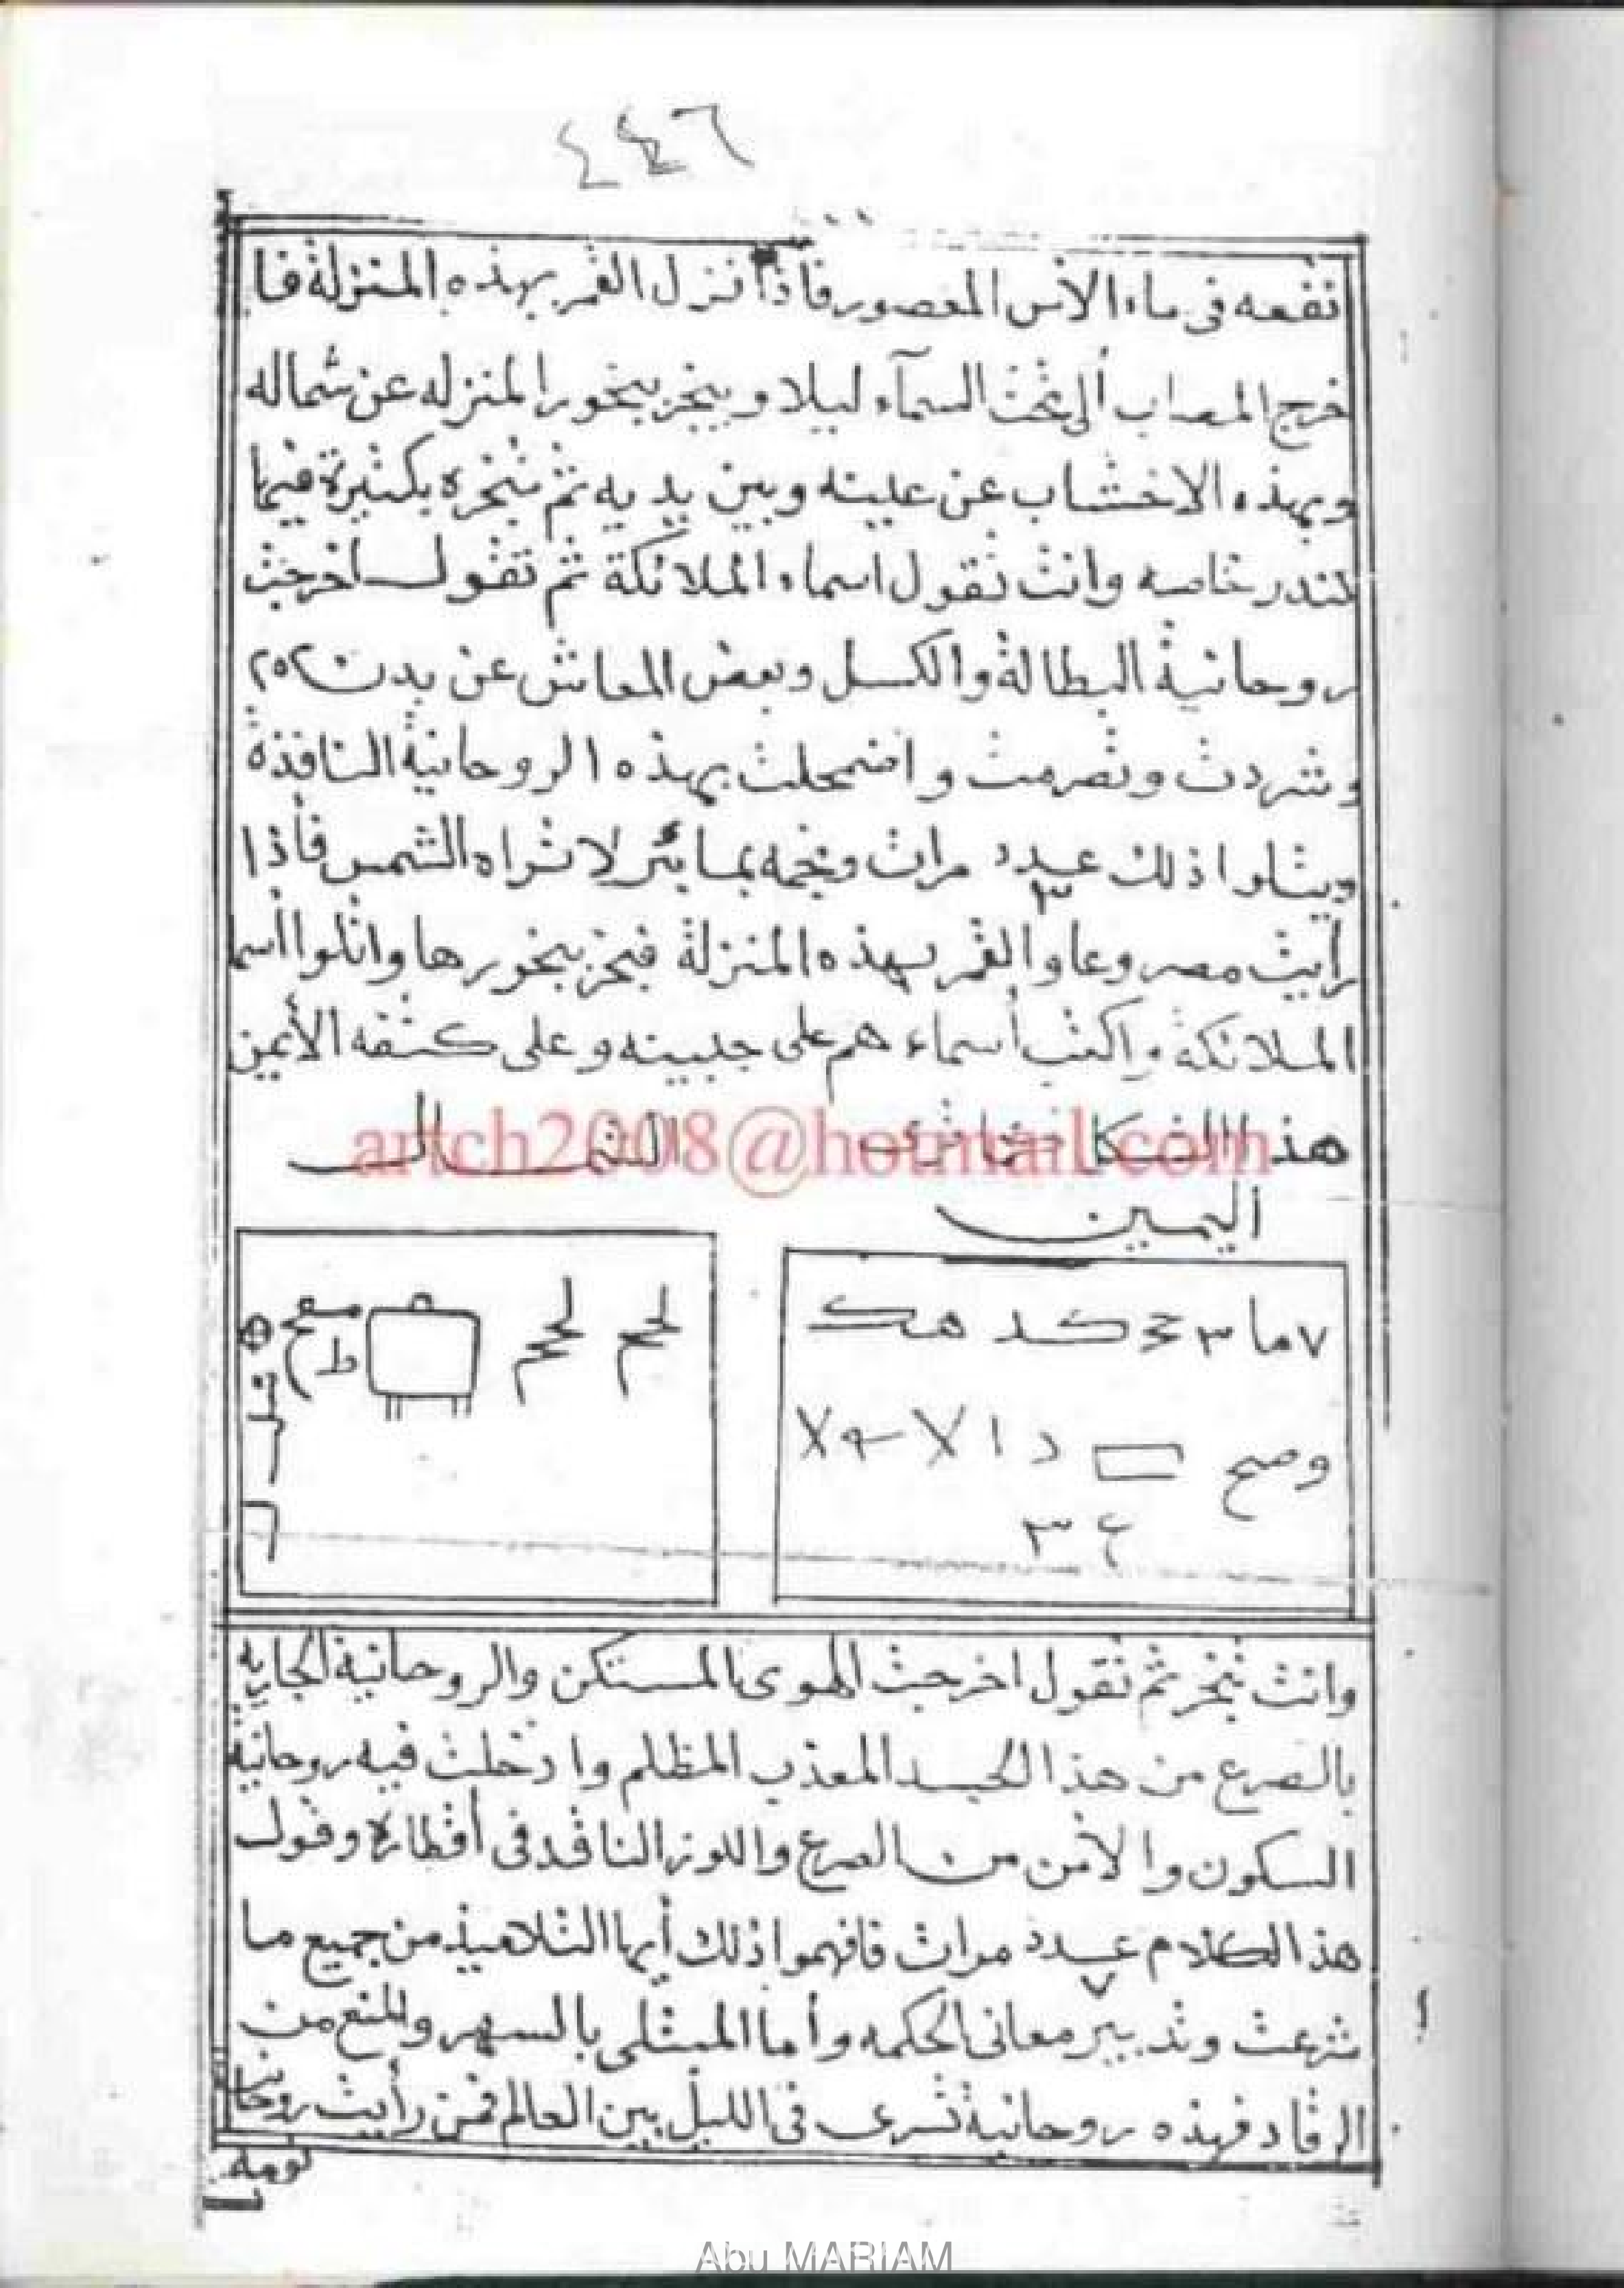 ٤٤٦
نقعه فى ماء الأس المعصور فأذا نزل القمر بهذه المنزلة فا
خرج المصاب ألى تحت السمآء ليلا و يبخر ببخور المنزله عن شماله
وبهذه الاخشاب عن عينه وبين يديه ثم تبخره بكثيرة فيما
تندر خاصه وانت تقول اسماء الملائكة ثم تقول اخرجت
روحانية البطالة والكسل وبعض المعاش عن بدن
وشردت وتصرمت واضمحلت بهذه الروحانية النافذة
ويتلوا ذلك عدد ٣ مرات ونجمه بما بئر لا تراه الشمس فأذا
رأيت مصروعا والقمر بهذه المنزلة فبخر ببخورها واتلوا اسما
الملائكة واكتب أسماء هم على جبينه وعلى كتفه الأيمن
هذا الشمال
artch2008@hotmail.com
اليمين
٧ما ٣ كد هك
وصح د ا
٣ ع
لحم
وانت تبخر ثم تقول اخرجت الهوى المستكن والروحانية الجايه
بالصرع من هذا الجسد المعذب المظلم وا دخلت فيه روحانية
السكون والأمن من الصرع واللوز النافد فى أقطاره وقول
هذا الكلام عدد ٧ مرات فافهموا ذلك أيها التلاميذ من جميع ما
شرعت وتدبير معانى الحكمه وأما المبتلى بالسهر والمنع من
الرقاد فهذه روحانية تسرى فى الليل بين العالم فمن رأيت روحا
نومه
Abu MARIAM